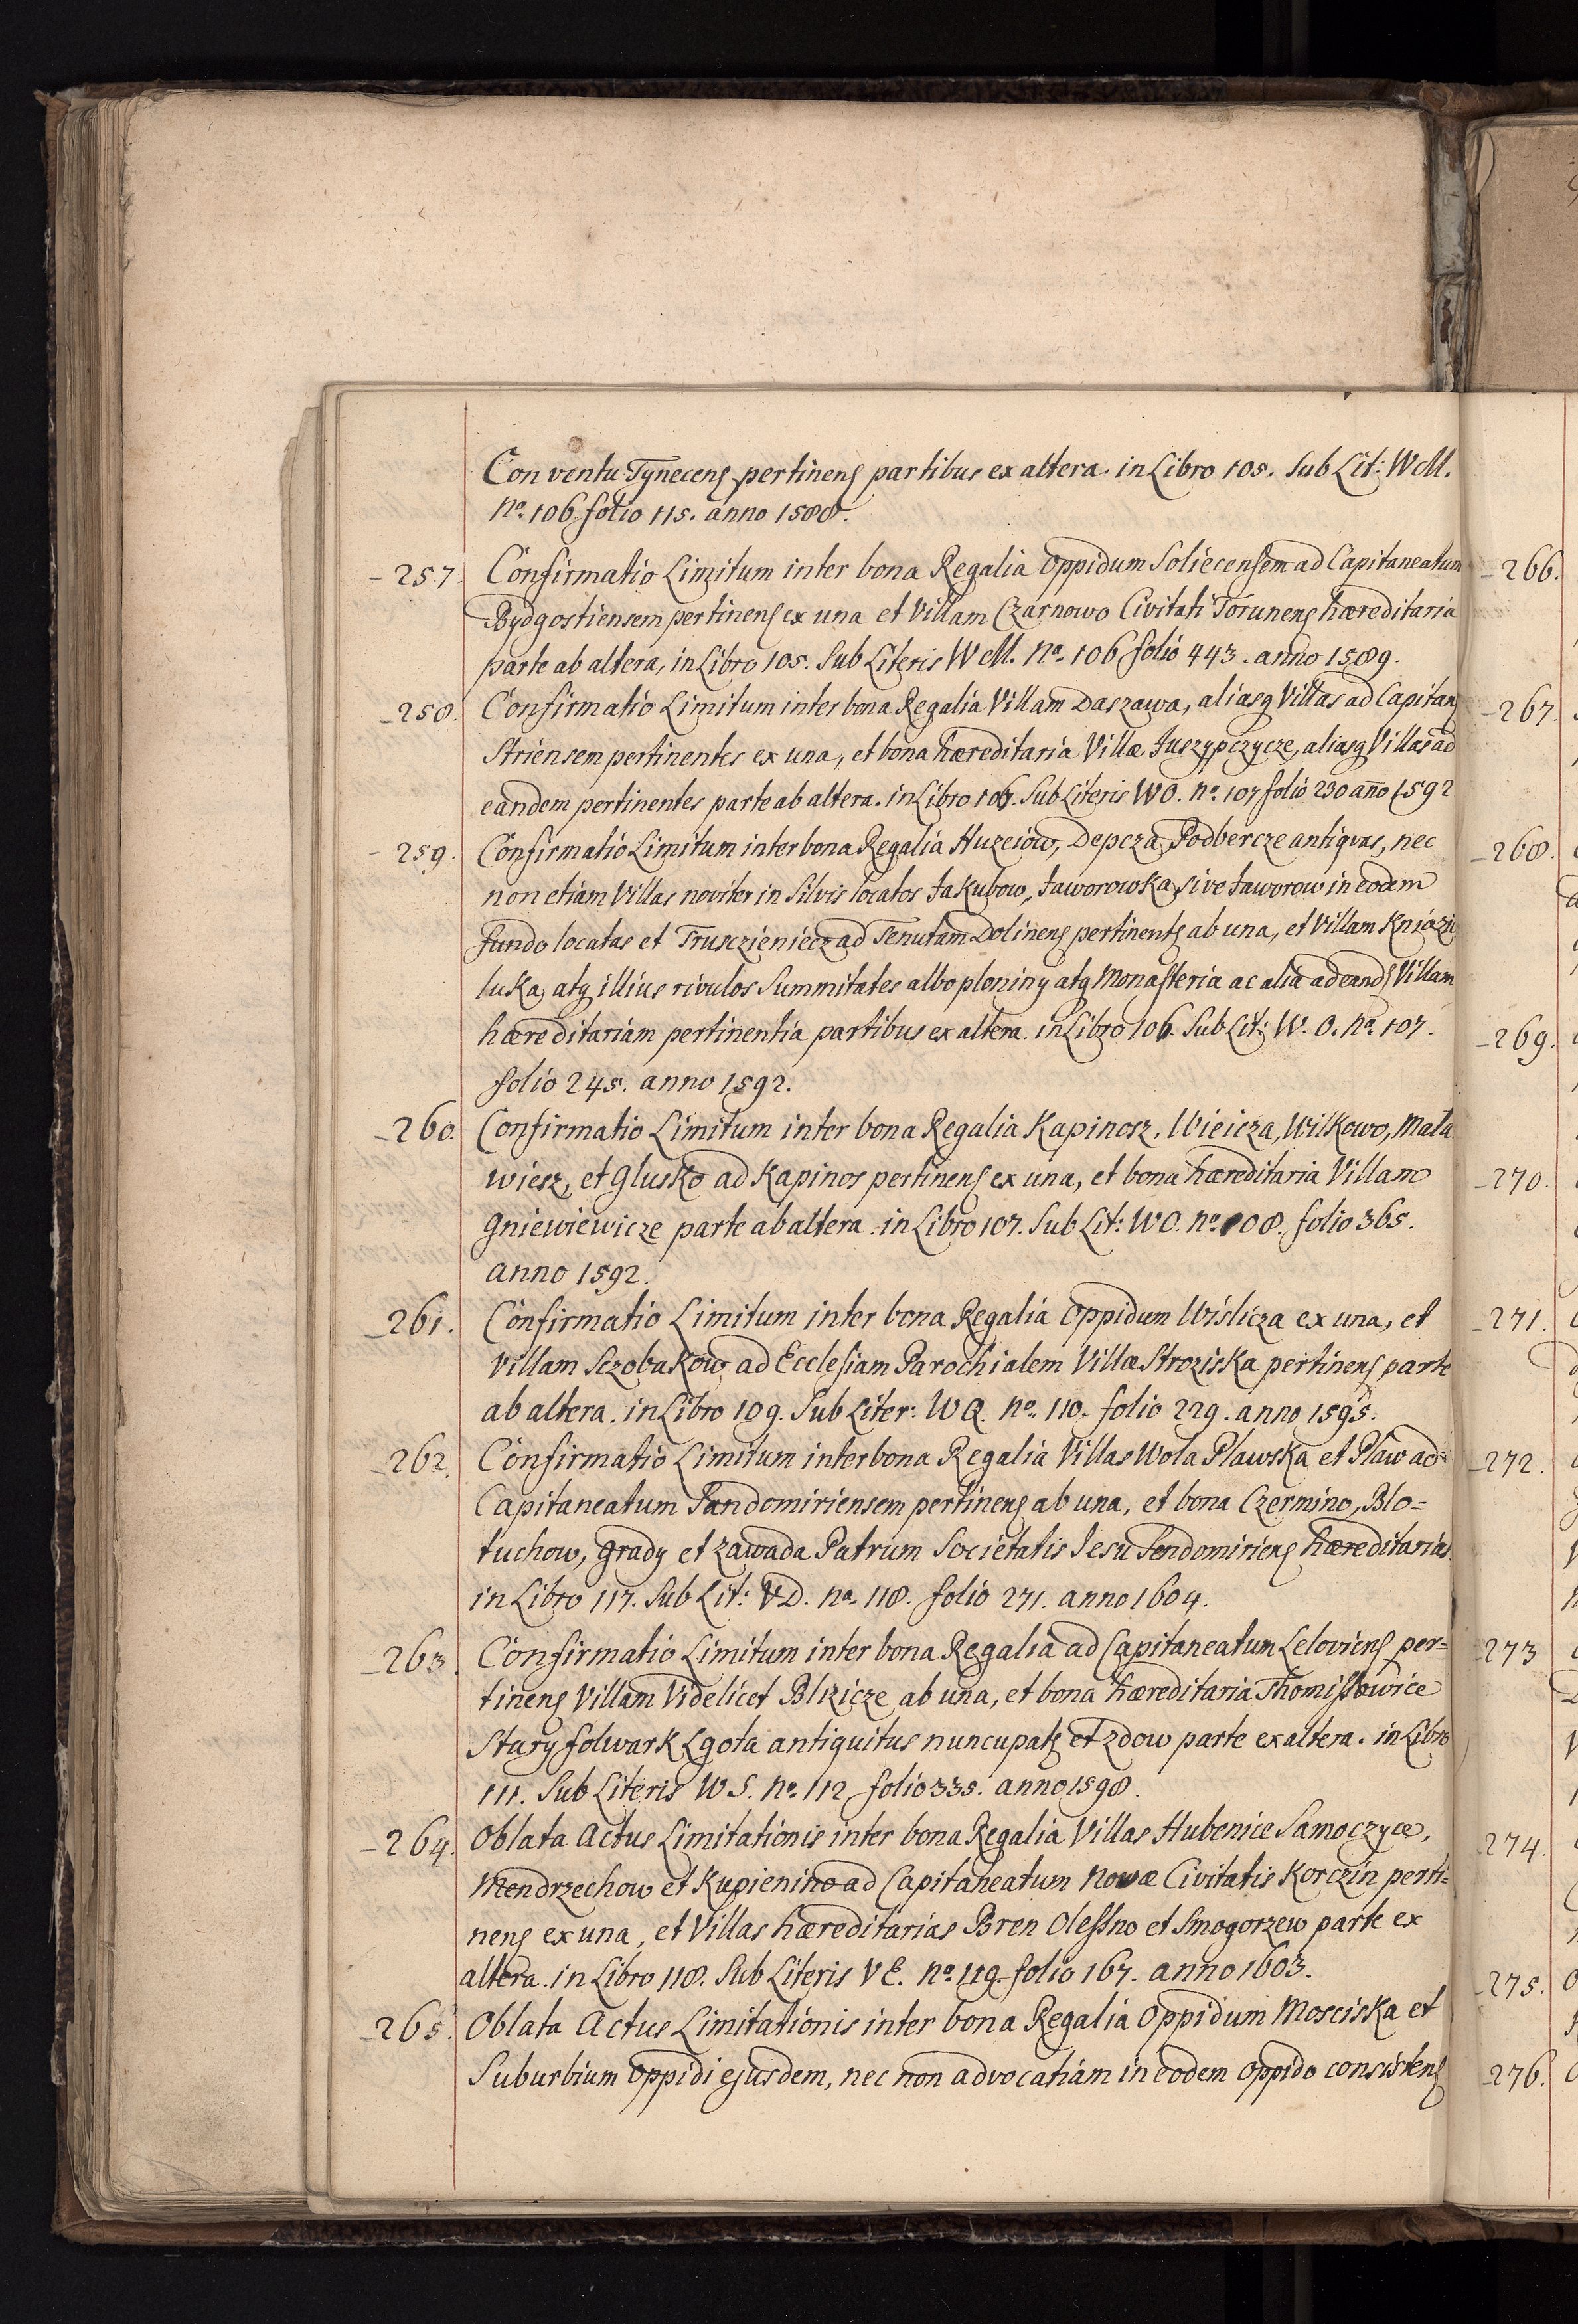 Conventu Tynecens pertinens partibus ex altera. in Libro 105. Sub Lit: WM.
No. 106 folio 115. anno 1588.
257. Confirmatio Limitum inter bona Regalia Oppidum Soliecensem ad Capitaneatum
Bydgostiensem pertinens ex una et Villam Czarnowo Civitati Torunens hæreditaria
parte ab altera, in Libro 105. Sub Literis WM. No. 106 folio 443. anno 1589.
258. Confirmatio Limitum inter bona Regalia Villam Daszawa, aliasq Villas ad Capitan
Striensem pertinentes ex una, et bona hæreditaria Villæ Juszypczycze, aliasq Villas ad
eandem pertinentes parte ab altera. in Libro 106. Sub Literis WO. No. 107 folio 230 año 1592
259. Confirmatio Limitum inter bona Regalia Huzeiow, Depcza, Podbercze antiquas, nec
non etiam Villas noviter in Silvis locatos Jakubow, Jaworowka, sive Jaworow in eodem
fundo locatas et Trusczieniecz ad Tenutam Dolinens pertinents ab una, et Villam Kniazio
luka, atq illius rivulos Summitates albo ploniny atq Monasteria ac alia ad eand Villam
hæreditariam pertinentia partibus ex altera. in Libro 106. Sub Lit: W. O. No. 107.
folio 245. anno 1592.
260. Confirmatio Limitum inter bona Regalia Kapinosz, Wieicza, Wilkowo, Mala
wiesz, et Glusko ad Kapinos pertinens ex una, et bona hæreditaria Villam
Gniewiewicze parte ab altera. in Libro 107. Sub Lit: WO. No. 108. folio 365.
anno 1592.
261. Confirmatio Limitum inter bona Regalia Oppidum Wislicza ex una, et
Villam Sczobakow ad Ecclesiam Parochialem Villæ Stroziska pertinens parte
ab altera. in Libro 109. Sub Liter: WQ. No. 110. folio 229. anno 1595.
262. Confirmatio Limitum inter bona Regalia Villas Wola Plawska et Plaw ad
Capitaneatum Sandomiriensem pertinens ab una, et bona Czermino, Blo=
tuchow, Grady et Zawada Patrum Societatis Jesu Sendomiriens hæreditarias
in Libro 117. Sub Lit: VD. No. 118. folio 271. anno 1604.
263. Confirmatio Limitum inter bona Regalia ad Capitaneatum Leloviens per=
tinens Villam Videlicet Blizicze ab una, et bona hæreditaria Thomissowice
Stary folwark Lgota antiquitus nuncupats et Zdow parte ex altera. in Libro
111. Sub Literis WS. No. 112 folio 335. anno 1598.
264. Oblata Actus Limitationis inter bona Regalia Villas Hubenice Samoczyce,
Mendrzechow et Kupienino ad Capitaneatum Novæ Civitatis Korczin perti=
nens ex una, et Villas hæreditarias Bren Olessno et Smogorzew parte ex
altera. in Libro 118. Sub Literis VE. No. 119. folio 167. anno 1603.
265. Oblata Actus Limitationis inter bona Regalia Oppidum Mosciska et
Suburbium Oppidi ejusdem, nec non advocatiam in eodem Oppido consistens
266.
267.
268.
269.
270.
271.
272.
273
274.
275.
276.